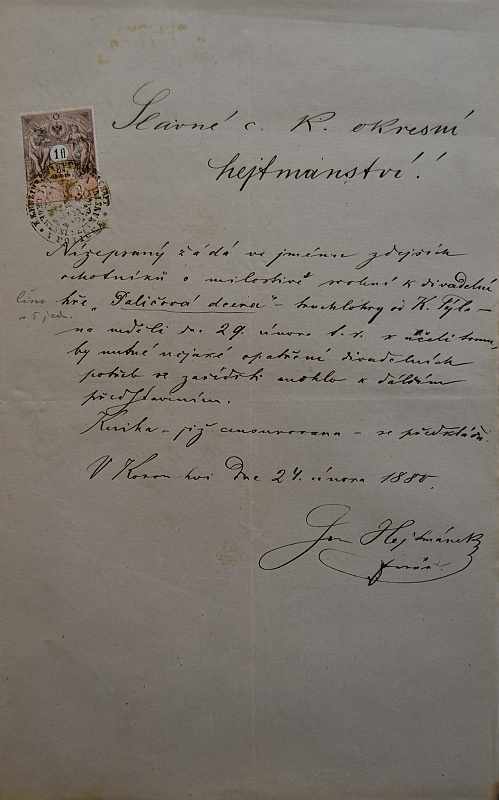 Slavné c. k. okresní
hejtmanství!
1 fl
Nížepsaný žádá ve jménu zdejších
ochotníků o milostivé svolení k divadelní
hře „Paličova dcera" – truchlohry od K. Tyla –
na neděli dne 29. února t. r. z účelů
by nutné nějaké opatření divadelních
potřeb se zaříditi mohlo k dalším
představením.
Kniha – již censurovaná – se předkládá.
čino
v 5 jedn.
V dne 24. února 1880.
Jan Hejtmánek